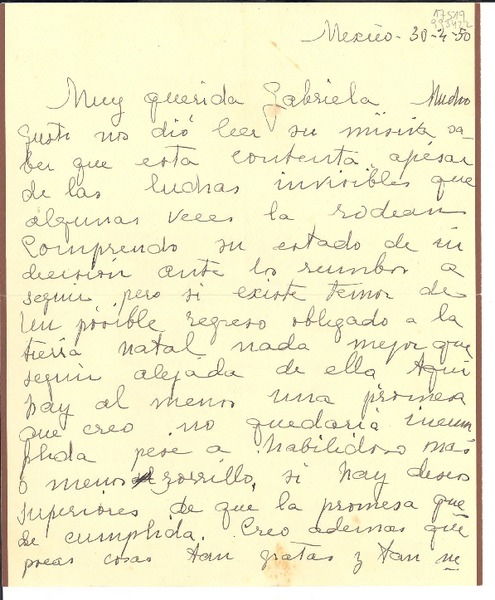 17519
México - 30-4-50
Muy querida Gabriela Mucho
gusto nos dió leer su misiva sa-
ber que esta contenta, apesar
de las luchas invisibles que
algunas veces la rodean
Comprendo su estado de in
decisión ante los rumbos a
seguir, pero si existe temor de
un posible regreso obligado a la
tierra natal nada mejor que
seguir alejada de ella Aquí
hay al menos una promesa
que creo no quedaria incum
plida pese a habilidoso mas
o menos zorrillo, si hay deseos
superiores de que la promesa que
de cumplida. Creo ademas que
pocas cosas tan gratas y tan ne